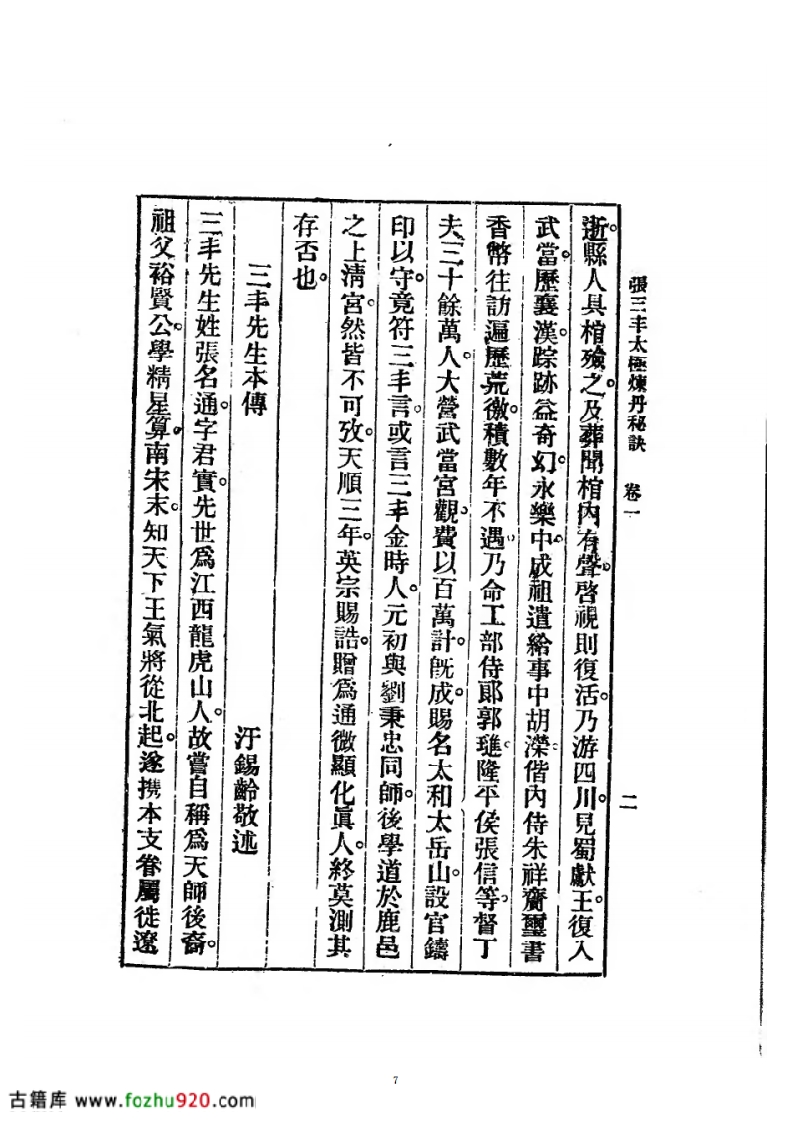 張三丰太極煉丹秘訣　卷一　二
逝。縣人具棺殮之。及葬。聞棺內有聲。啓視則復活。乃游四川。見蜀獻王。復入
武當。歷襄漢。踪跡益奇幻。永樂中。成祖遣給事中胡濙偕內侍朱祥齎璽書
香幣往訪。遍歷荒徼。積數年不遇。乃命工部侍郞郭璡。隆平侯張信等。督丁
夫三十餘萬人。大營武當宮觀。費以百萬計。旣成。賜名太和太岳山。設官鑄
印以守。竟符三丰言。或言三丰金時人。元初與劉秉忠同師。後學道於鹿邑
之上淸宮。然皆不可攷。天順三年。英宗賜誥。贈爲通微顯化眞人。終莫測其
存否也。
三丰先生本傳
汙錫齡敬述
三丰先生姓張名通。字君實。先世爲江西龍虎山人。故嘗自稱爲天師後裔。
祖父裕賢公。學精星算。南宋末。知天下王氣將從北起。遂攜本支眷屬徙遼
7
古籍库 www.fozhu920.com